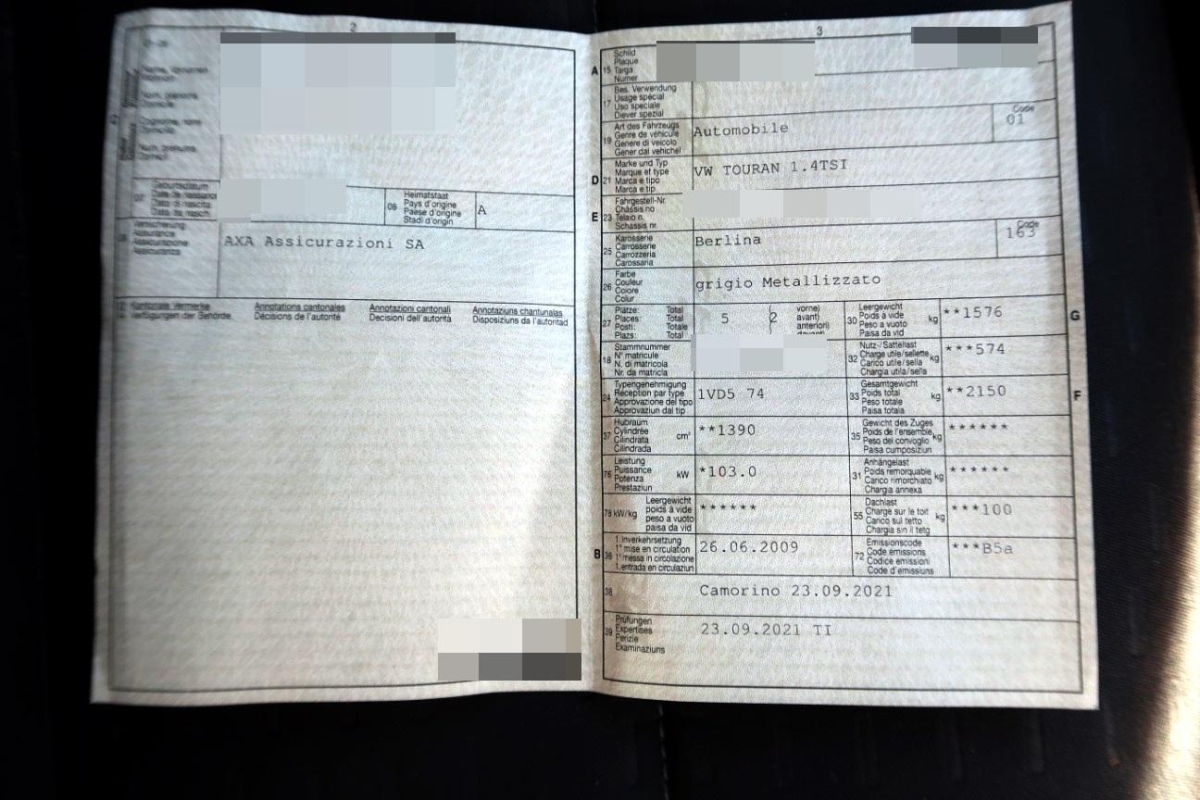 2
Name, Vornamen
Nom, prénoms
Cognome, nomi
Num, prenums
Geburtsdatum
Date de naissance
Data di nascita
Data da nasch.
08
Heimatstaat
Pays d'origine
Paese d'origine
Stadi d'origin
A
Versicherung
Assurance
Assicurazione
Assicuranza
AXA Assicurazioni SA
Kantonale Vermerke
Verfügungen der Behörde
Annotations cantonales
Décisions de l'autorité
Annotazioni cantonali
Decisioni dell'autorità
Annotaziuns chantunales
Disposiziuns da l'autoritad
3
A
15
Schild
Plaque
Targa
Numer
17
Bes. Verwendung
Usage spécial
Uso speciale
Diever spezial
19
Art des Fahrzeugs
Genre de véhicule
Genere di veicolo
Gener dal vehichel
Automobile
Code
01
D
21
Marke und Typ
Marque et type
Marca e tipo
Marca e tip
VW TOURAN 1.4TSI
E
23
Fahrgestell-Nr.
Châssis no
Telaio n.
Schassis nr.
25
Karosserie
Carrosserie
Carrozzeria
Carossaria
Berlina
Code
163
26
Farbe
Couleur
Colore
Colur
grigio Metallizzato
27
Plätze: Total
Places: Total
Posti: Totale
Plazs: Total
5
2
vorne)
avant)
anteriori)
30
Leergewicht
Poids à vide
Peso a vuoto
Paisa da vid
kg
**1576
G
18
Stammnummer
N° matricule
N. di matricola
Nr. da matricla
32
Nutz-/Sattellast
Charge utile/sellette
Carico utile/sella
Chargia utila/sella
kg
***574
24
Typengenehmigung
Réception par type
Approvazione del tipo
Approvaziun dal tip
1VD5 74
33
Gesamtgewicht
Poids total
Peso totale
Paisa totala
kg
**2150
F
37
Hubraum
Cylindrée
Cilindrata
Cilindrada
cm³
**1390
35
Gewicht des Zuges
Poids de l'ensemble
Peso del convoglio
Paisa cumposiziun
kg
******
76
Leistung
Puissance
Potenza
Prestaziun
kW
*103.0
31
Anhängelast
Poids remorquable
Carico rimorchiato
Chargia annexa
kg
******
78
kW/kg
Leergewicht
poids à vide
peso a vuoto
paisa da vid
******
55
Dachlast
Charge sur le toit
Carico sul tetto
Chargia sin il tetg
kg
***100
B
36
1. Inverkehrsetzung
1re mise en circulation
1a messa in circolazione
1. entrada en circulaziun
26.06.2009
72
Emissionscode
Code émissions
Codice emissioni
Code d'emissiuns
***B5a
38
Camorino 23.09.2021
39
Prüfungen
Expertises
Perizie
Examinaziuns
23.09.2021 TI